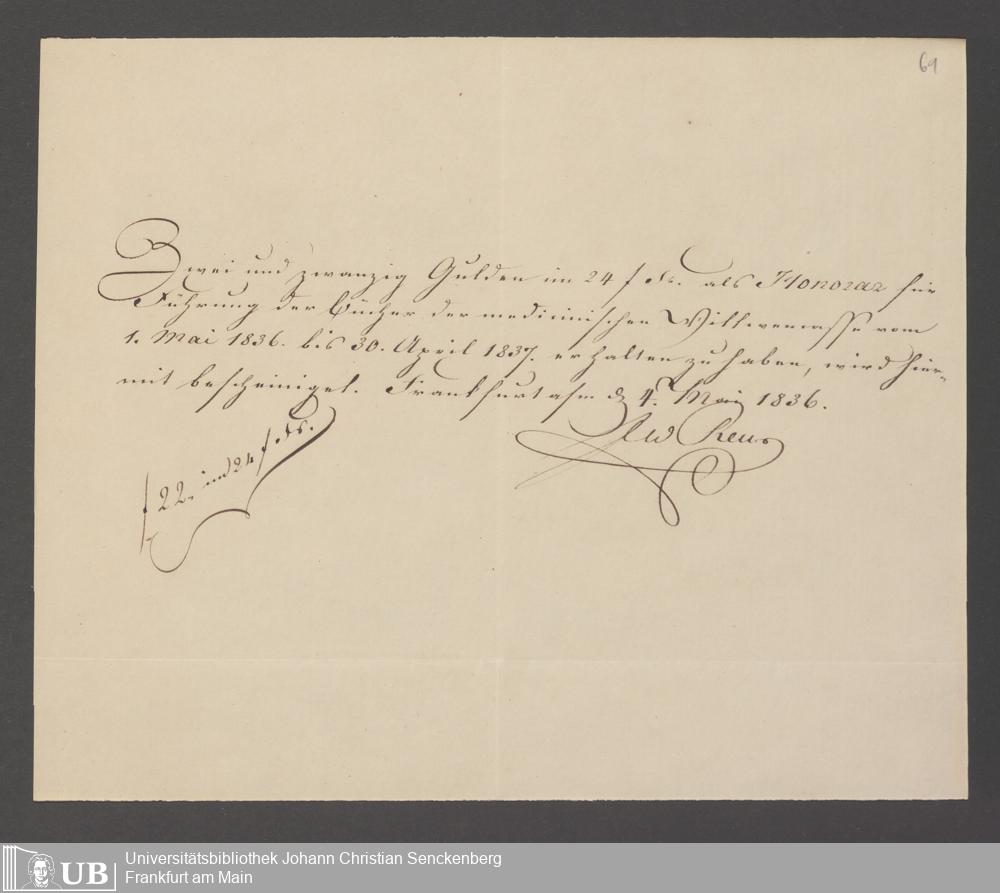 69
Zwei und zwanzig Gulden im 24 f ds. als Honorar für
Führung der Bücher der medicinischen Wittwencasse vom
1. Mai 1836. bis 30. April 1837. erhalten zu haben, wird hier-
mit bescheiniget. Frankfurt a/m d 4. Mai 1836.
f 22. im 24 f ds.
UB
Universitätsbibliothek Johann Christian Senckenberg
Frankfurt am Main